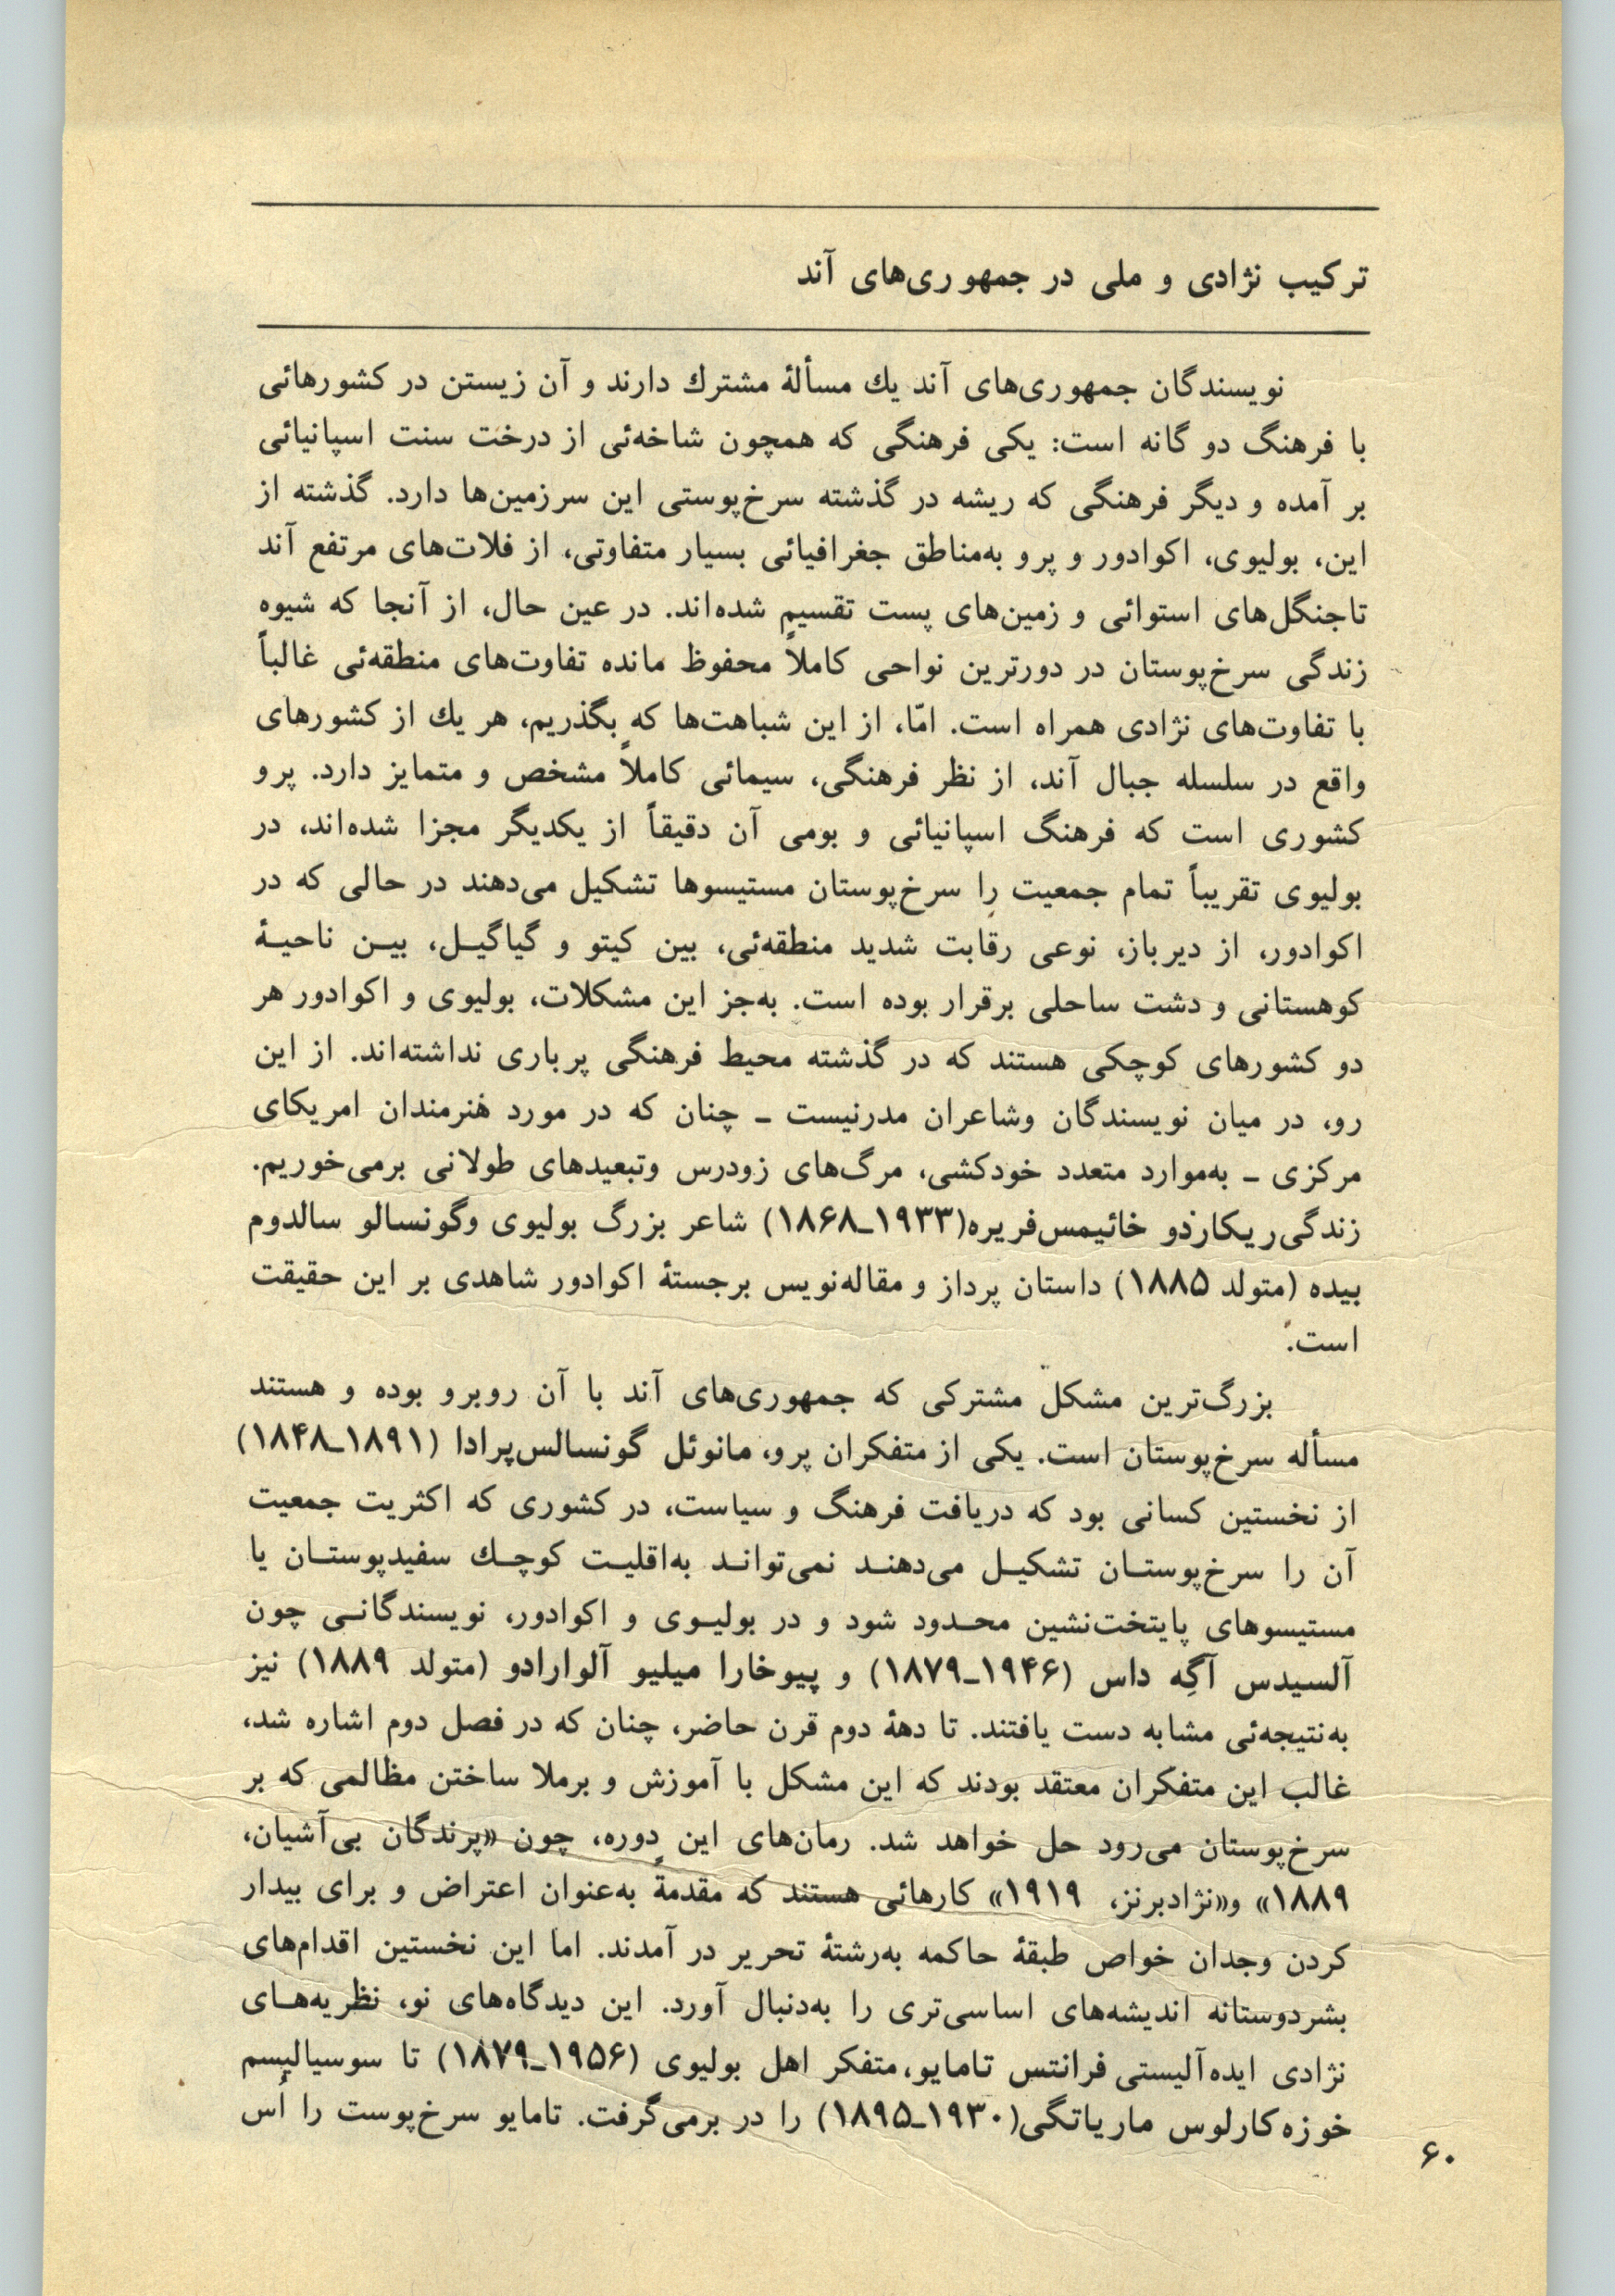 ترکیب نژادی و ملی در جمهوری‌های آند
نویسندگان جمهوری‌های آند یك مسألهٔ مشترك دارند و آن زیستن در کشورهائی
با فرهنگ دو گانه است: یکی فرهنگی که همچون شاخه‌ئی از درخت سنت اسپانیائی
بر آمده و دیگر فرهنگی که ریشه در گذشته سرخ‌پوستی این سرزمین‌ها دارد. گذشته از
این، بولیوی، اکوادور و پرو به‌مناطق جغرافیائی بسیار متفاوتی، از فلات‌های مرتفع آند
تاجنگل‌های استوائی و زمین‌های پست تقسیم شده‌اند. در عین حال، از آنجا که شیوه
زندگی سرخ‌پوستان در دورترین نواحی کاملاً محفوظ مانده تفاوت‌های منطقه‌ئی غالباً
با تفاوت‌های نژادی همراه است. امّا، از این شباهت‌ها که بگذریم، هر یك از کشورهای
واقع در سلسله جبال آند، از نظر فرهنگی، سیمائی کاملاً مشخص و متمایز دارد. پرو
کشوری است که فرهنگ اسپانیائی و بومی آن دقیقاً از یکدیگر مجزا شده‌اند، در
بولیوی تقریباً تمام جمعیت را سرخ‌پوستان مستیسوها تشکیل می‌دهند در حالی که در
اکوادور، از دیرباز، نوعی رقابت شدید منطقه‌ئی، بین کیتو و گیاگیـل، بیـن ناحیـهٔ
کوهستانی و دشت ساحلی برقرار بوده است. به‌جز این مشکلات، بولیوی و اکوادور هر
دو کشورهای کوچکی هستند که در گذشته محیط فرهنگی پرباری نداشته‌اند. از این
رو، در میان نویسندگان وشاعران مدرنیست ـ چنان که در مورد هنرمندان امریکای
مرکزی ـ به‌موارد متعدد خودکشی، مرگ‌های زودرس وتبعیدهای طولانی برمی‌خوریم.
زندگی‌ریکاردو خائیمس‌فریره(۱۹۳۳ـ۱۸۶۸) شاعر بزرگ بولیوی وگونسالو سالدوم
بیده (متولد ۱۸۸۵) داستان پرداز و مقاله‌نویس برجستهٔ اکوادور شاهدی بر این حقیقت
است.
بزرگ‌ترین مشکل مشترکی که جمهوری‌های آند با آن روبرو بوده و هستند
مسأله سرخ‌پوستان است. یکی از متفکران پرو، مانوئل گونسالس‌پرادا (۱۸۹۱ـ۱۸۴۸)
از نخستین کسانی بود که دریافت فرهنگ و سیاست، در کشوری که اکثریت جمعیت
آن را سرخ‌پوستـان تشکیـل می‌دهنـد نمی‌توانـد به‌اقلیـت کوچـك سفیدپوستـان یا
مستیسوهای پایتخت‌نشین محـدود شود و در بولیـوی و اکوادور، نویسندگانـی چون
آلسیدس آگِه داس (۱۹۴۶ـ۱۸۷۹) و پیوخارا میلیو آلوارادو (متولد ۱۸۸۹) نیز
به‌نتیجه‌ئی مشابه دست یافتند. تا دههٔ دوم قرن حاضر، چنان که در فصل دوم اشاره شد،
غالب این متفکران معتقد بودند که این مشکل با آموزش و برملا ساختن مظالمی که بر
سرخ‌پوستان می‌رود حل خواهد شد. رمان‌های این دوره، چون «پرندگان بی‌آشیان،
۱۸۸۹» و«نژادبرنز، ۱۹۱۹» کارهائی هستند که مقدمةً به‌عنوان اعتراض و برای بیدار
کردن وجدان خواص طبقهٔ حاکمه به‌رشتهٔ تحریر در آمدند. اما این نخستین اقدام‌های
بشردوستانه اندیشه‌های اساسی‌تری را به‌دنبال آورد. این دیدگاه‌های نو، نظریه‌هـای
نژادی ایده‌آلیستی فرانتس تامایو، متفکر اهل بولیوی (۱۹۵۶ـ۱۸۷۹) تا سوسیالیسم
خوزه‌کارلوس ماریاتگی(۱۹۳۰ـ۱۸۹۵) را در برمی‌گرفت. تامایو سرخ‌پوست را اُس
۶۰